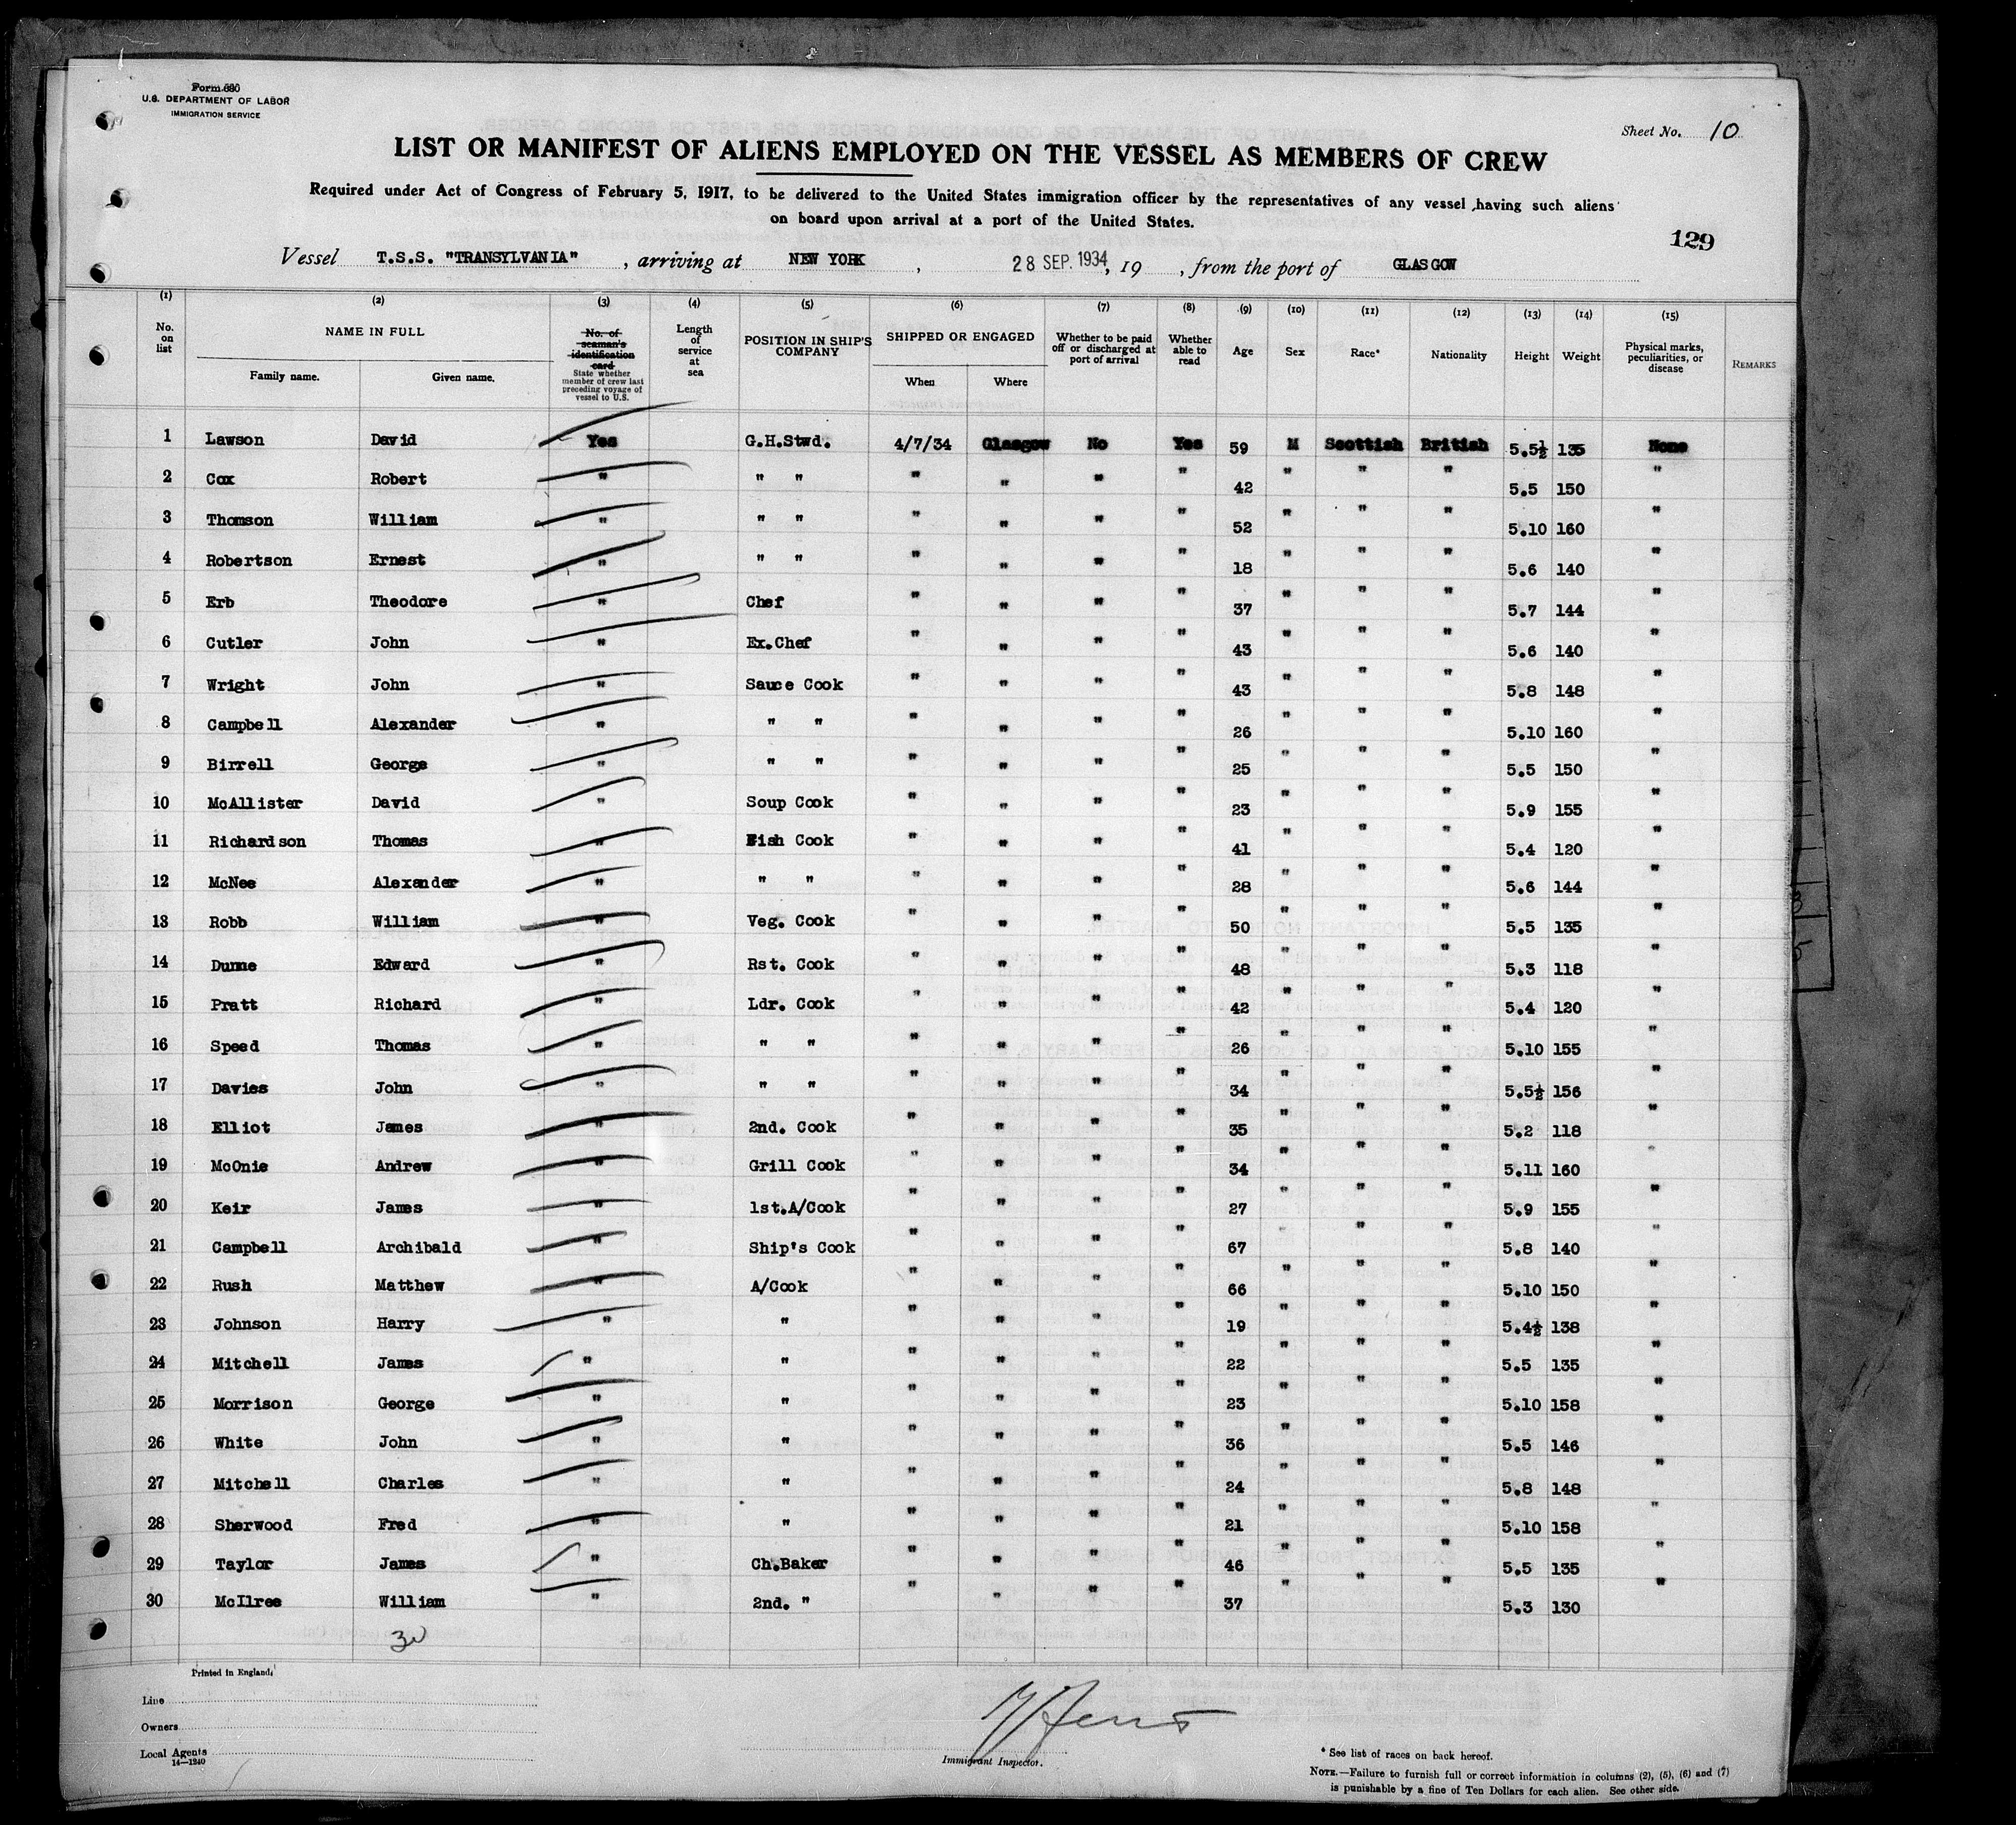 Form 680
U.S. DEPARTMENT OF LABOR
IMMIGRATION SERVICE
Sheet No. 10
LIST OR MANIFEST OF ALIENS EMPLOYED ON THE VESSEL AS MEMBERS OF CREW
Required under Act of Congress of February 5, 1917, to be delivered to the United States immigration officer by the representatives of any vessel having such aliens
on board upon arrival at a port of the United States.
129
Vessel T.S.S. "TRANSYLVANIA", arriving at NEW YORK, 28 SEP. 1934, 19 , from the port of GLASGOW
(1) (2) (3) (4) (5) (6) (7) (8) (9) (10) (11) (12) (13) (14) (15)
No. on list NAME IN FULL Family name. Given name. No. of seaman's identification card State whether member of crew last preceding voyage of vessel to U.S. Length of service at sea POSITION IN SHIP'S COMPANY SHIPPED OR ENGAGED When Where Whether to be paid off or discharged at port of arrival Whether able to read Age Sex Race* Nationality Height Weight Physical marks, peculiarities, or disease REMARKS
1 Lawson David Yes G.H.Stwd. 4/7/34 Glasgow No Yes 59 M Scottish British 5.5½ 135 None
2 Cox Robert " " " " " " " 42 " " " 5.5 150 "
3 Thomson William " " " " " " " 52 " " " 5.10 160 "
4 Robertson Ernest " " " " " " " 18 " " " 5.6 140 "
5 Erb Theodore " Chef " " " " 37 " " " 5.7 144 "
6 Cutler John " Ex.Chef " " " " 43 " " " 5.6 140 "
7 Wright John " Sauce Cook " " " " 43 " " " 5.8 148 "
8 Campbell Alexander " " " " " " " 26 " " " 5.10 160 "
9 Birrell George " " " " " " " 25 " " " 5.5 150 "
10 McAllister David " Soup Cook " " " " 23 " " " 5.9 155 "
11 Richardson Thomas " Fish Cook " " " " 41 " " " 5.4 120 "
12 McNee Alexander " " " " " " " 28 " " " 5.6 144 "
13 Robb William " Veg. Cook " " " " 50 " " " 5.5 135 "
14 Dunne Edward " Rst. Cook " " " " 48 " " " 5.3 118 "
15 Pratt Richard " Ldr. Cook " " " " 42 " " " 5.4 120 "
16 Speed Thomas " " " " " " " 26 " " " 5.10 155 "
17 Davies John " " " " " " " 34 " " " 5.5½ 156 "
18 Elliot James " 2nd. Cook " " " " 35 " " " 5.2 118 "
19 McOnie Andrew " Grill Cook " " " " 34 " " " 5.11 160 "
20 Keir James " 1st.A/Cook " " " " 27 " " " 5.9 155 "
21 Campbell Archibald " Ship's Cook " " " " 67 " " " 5.8 140 "
22 Rush Matthew " A/Cook " " " " 66 " " " 5.10 150 "
23 Johnson Harry " " " " " " 19 " " " 5.4½ 138 "
24 Mitchell James " " " " " " 22 " " " 5.5 135 "
25 Morrison George " " " " " " 23 " " " 5.10 158 "
26 White John " " " " " " 36 " " " 5.5 146 "
27 Mitchell Charles " " " " " 24 " " " 5.8 148 "
28 Sherwood Fred " " " " " " 21 " " " 5.10 158 "
29 Taylor James " Ch.Baker " " " " 46 " " " 5.5 135 "
30 McIlree William " 2nd. " " " " " 37 " " " 5.3 130 "
30
Printed in England.
Line
Owners
Local Agents
14—1240
Immigrant Inspector.
* See list of races on back hereof.
NOTE.—Failure to furnish full or correct information in columns (2), (5), (6) and (7)
is punishable by a fine of Ten Dollars for each alien. See other side.